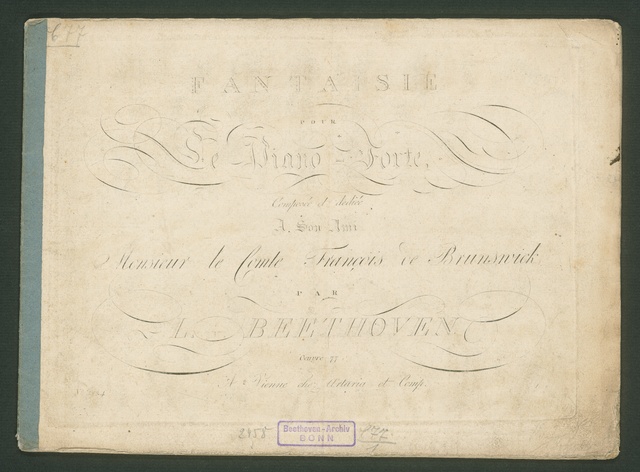 FANTAISIE
POUR
Le Piano-Forte,
Composée et dediée
A. Son Ami
Monsieur le Comte François de Brunswick
PAR
L. BEETHOVEN
Oeuvre 77.
A Vienne chez Artaria et Comp.
Beethoven-Archiv
BONN